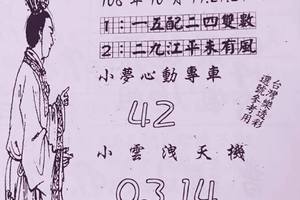 1：一五配二四雙數
2：二九江平未有風
小夢心動專車
42
小雲洩天機
0314
台灣樂透彩
選號參考用